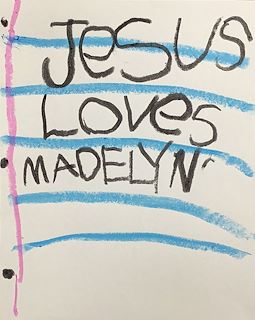 JeSUS
LOVeS
MADELYN